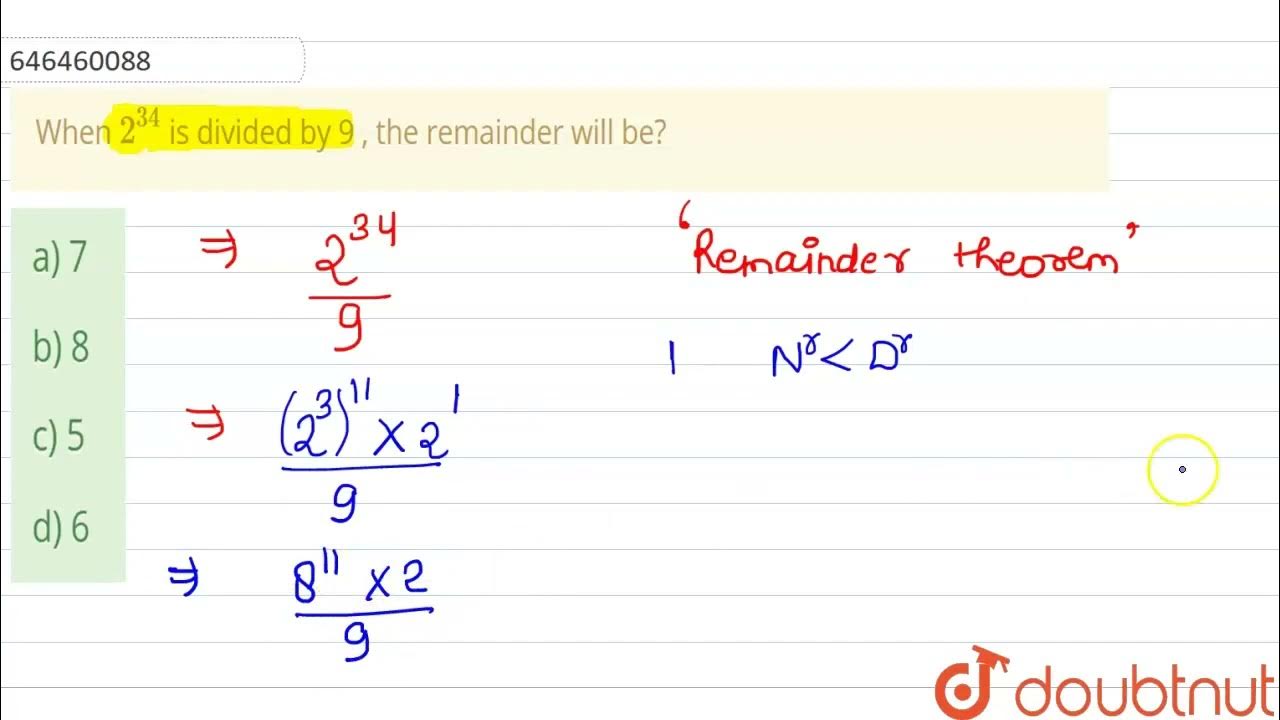 646460088
When 2^34 is divided by 9 , the remainder will be?
a) 7
b) 8
c) 5
d) 6
⇒ 2^34 / 9
‘Remainder theorem’
1 Nʳ < Dʳ
⇒ (2^3)^11 × 2^1 / 9
⇒ 8^11 × 2 / 9
doubtnut